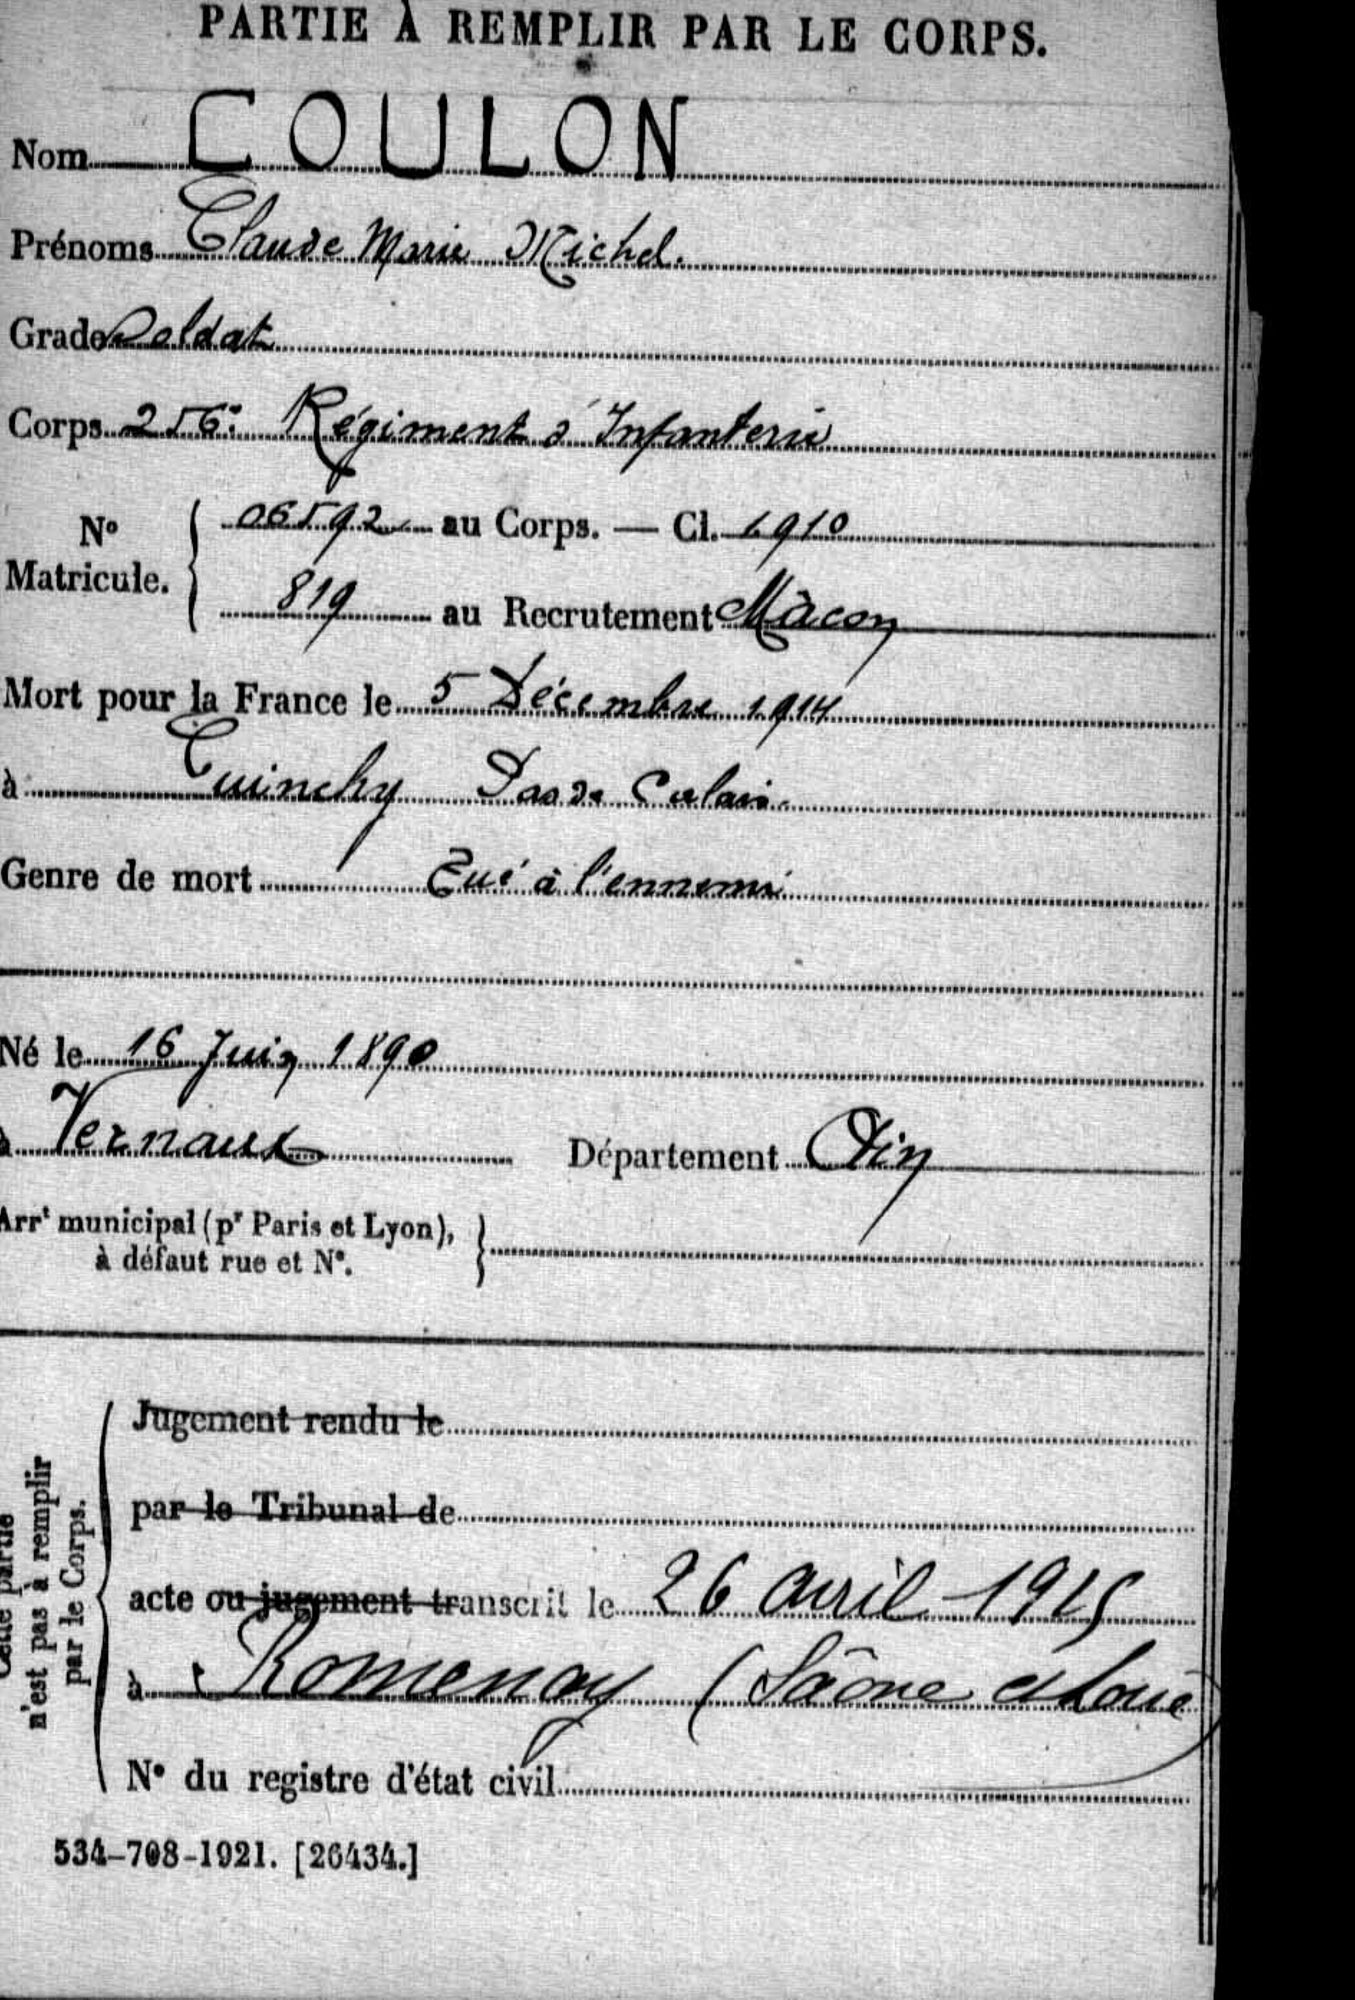 PARTIE À REMPLIR PAR LE CORPS.
Nom COULON
Prénoms Claude Marie Michel.
Grade Soldat
Corps 256e Régiment d'Infanterie
N° Matricule. { 06592 au Corps. — Cl. 1910
819 au Recrutement Mâcon
Mort pour la France le 5 Décembre 1914
à Cuinchy Pas de Calais.
Genre de mort Tué à l'ennemi
Né le 16 Juin 1890
à Vernoux Département Ain
Arrt municipal (pr Paris et Lyon), à défaut rue et N°. }
Cette partie n'est pas à remplir par le Corps.
Jugement rendu le
par le Tribunal de
acte ou jugement transcrit le 26 avril 1915
à Romenay (Saône et Loire)
N° du registre d'état civil
534-708-1921. [26434.]